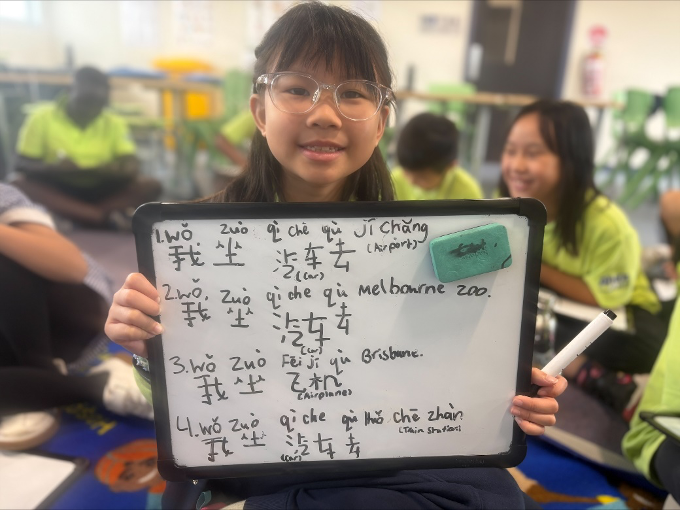 1. wǒ zuò qì chē qù jī chǎng
我 坐 汽车去 (Airport)
(car)
2. wǒ zuò qì che qù Melbourne zoo.
我 坐 汽车去
(car)
3. wǒ zuò Fēi jī qù Brisbane.
我 坐 飞机
(Airplane)
4. wǒ zuò qì che qù huǒ chē zhàn
我 坐 汽车去 (Train station)
(car)